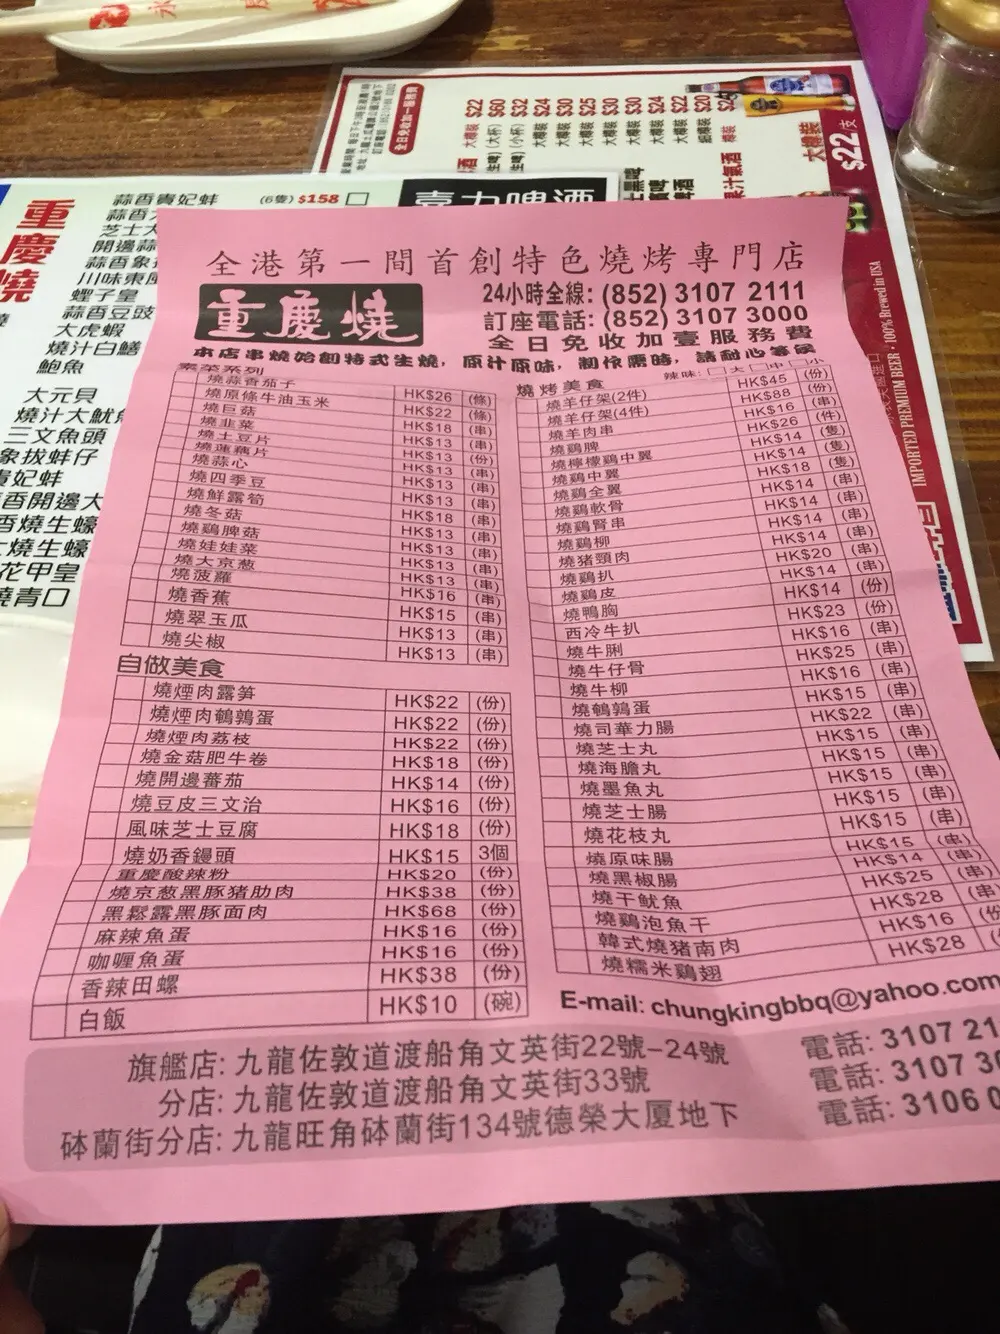 永
大樽裝 $22
(大杯) $60
(小杯) $32
大樽裝 $24
大樽裝 $30
大樽裝 $25
大樽裝 $30
大樽裝 $30
大樽裝 $24
大樽裝 $22
細樽裝 $20
樽裝
全日免收加一服務費
大樽裝 $22/支
果汁氣酒
IMPORTED PREMIUM BEER · 100% Brewed in USA
喜力啤酒
重慶燒
蒜香貴妃蚌 (6隻) $158
芝士大
開邊蒜
蒜香象
川味東風
蟶子皇
蒜香豆豉
大虎蝦
燒汁白鱔
鮑魚
大元貝
燒汁大魷
三文魚頭
象拔蚌仔
貴妃蚌
香開邊大
香燒生蠔
燒生蠔
花甲皇
燒青口
全港第一間首創特色燒烤專門店
重慶燒
24小時全線: (852) 3107 2111
訂座電話: (852) 3107 3000
全日免收加壹服務費
本店串燒始創特式生燒，原汁原味，制作需時，請耐心等候
素菜系列
燒蒜香茄子 HK$26 (條)
燒原條牛油玉米 HK$22 (條)
燒巨菇 HK$18 (串)
燒韭菜 HK$13 (串)
燒土豆片 HK$13 (份)
燒蓮藕片 HK$13 (串)
燒蒜心 HK$13 (串)
燒四季豆 HK$13 (串)
燒鮮露筍 HK$18 (串)
燒冬菇 HK$13 (串)
燒鷄脾菇 HK$13 (串)
燒娃娃菜 HK$13 (串)
燒大京葱 HK$13 (串)
燒菠蘿 HK$16 (串)
燒香蕉 HK$15 (串)
燒翠玉瓜 HK$13 (串)
燒尖椒 HK$13 (串)
自做美食
燒煙肉露笋 HK$22 (份)
燒煙肉鵪鶉蛋 HK$22 (份)
燒煙肉荔枝 HK$22 (份)
燒金菇肥牛卷 HK$18 (份)
燒開邊蕃茄 HK$14 (份)
燒豆皮三文治 HK$16 (份)
風味芝士豆腐 HK$18 (份)
燒奶香饅頭 HK$15 3個
重慶酸辣粉 HK$20 (份)
燒京葱黑豚猪肋肉 HK$38 (份)
黑鬆露黑豚面肉 HK$68 (份)
麻辣魚蛋 HK$16 (份)
咖喱魚蛋 HK$16 (份)
香辣田螺 HK$38 (份)
白飯 HK$10 (碗)
燒烤美食 辣味: □大 □中 □小
燒羊仔架(2件) HK$45 (份)
燒羊仔架(4件) HK$88 (份)
燒羊肉串 HK$16 (串)
燒鷄脾 HK$26 (件)
燒檸檬鷄中翼 HK$14 (隻)
燒鷄中翼 HK$14 (隻)
燒鷄全翼 HK$18 (隻)
燒鷄軟骨 HK$14 (串)
燒鷄腎串 HK$14 (串)
燒鷄柳 HK$14 (串)
燒猪頸肉 HK$14 (串)
燒鷄扒 HK$20 (串)
燒鷄皮 HK$14 (串)
燒鴨胸 HK$14 (份)
西冷牛扒 HK$23 (份)
燒牛脷 HK$16 (串)
燒牛仔骨 HK$25 (串)
燒牛柳 HK$16 (串)
燒鵪鶉蛋 HK$15 (串)
燒司華力腸 HK$22 (串)
燒芝士丸 HK$15 (串)
燒海膽丸 HK$15 (串)
燒墨魚丸 HK$15 (串)
燒芝士腸 HK$15 (串)
燒花枝丸 HK$15 (串)
燒原味腸 HK$15 (串)
燒黑椒腸 HK$14 (串)
燒干魷魚 HK$25 (串)
燒鷄泡魚干 HK$28
韓式燒猪南肉 HK$16
燒糯米鷄翅 HK$28
E-mail: chungkingbbq@yahoo.com
旗艦店: 九龍佐敦道渡船角文英街22號-24號 電話: 3107 21
分店: 九龍佐敦道渡船角文英街33號 電話: 3107 30
砵蘭街分店: 九龍旺角砵蘭街134號德榮大厦地下 電話: 3106 0